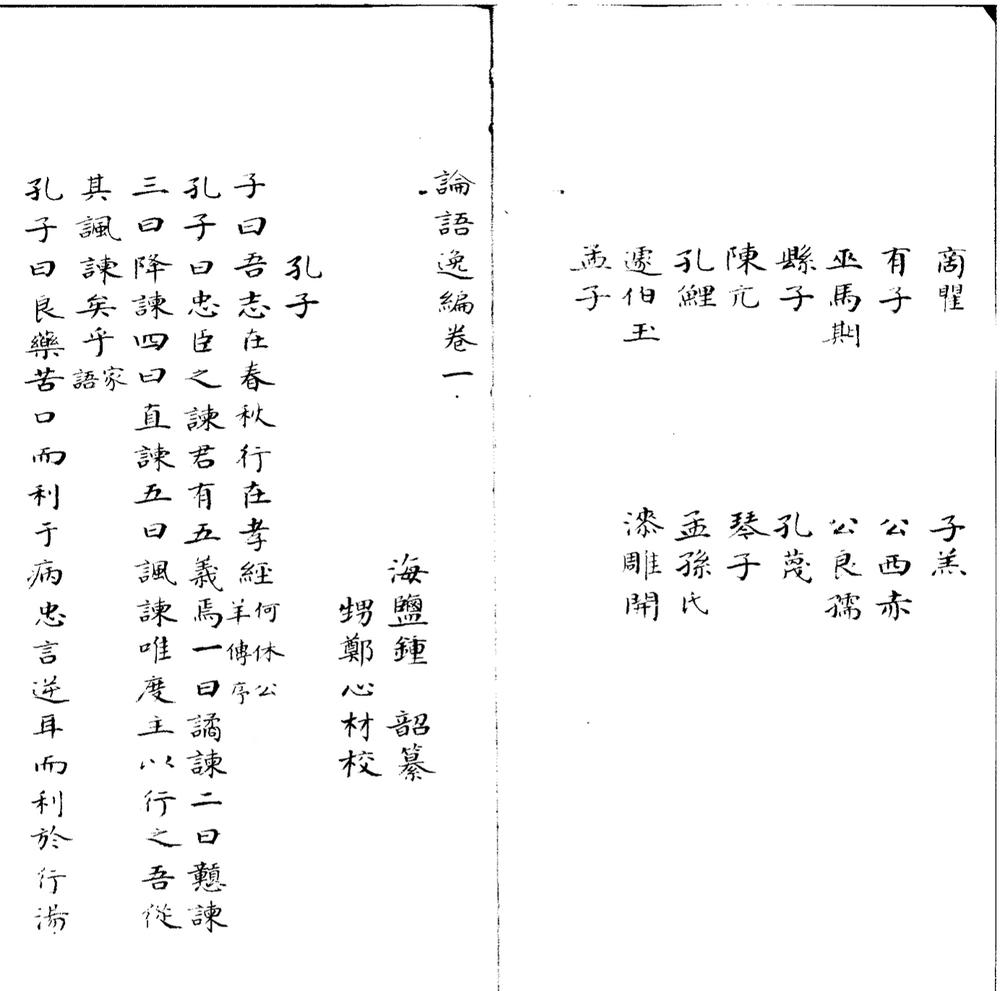 商瞿 子羔
有子 公西赤
巫馬期 公良孺
縣子 孔蔑
陳亢 琴子
孔鯉 孟孫氏
蘧伯玉 漆雕開
孟子
論語逸編卷一
海鹽鍾 韶纂
甥鄭心材校
孔子
子曰吾志在春秋行在孝經何休公羊傳序
孔子曰忠臣之諫君有五義焉一曰譎諫二曰戇諫
三曰降諫四曰直諫五曰諷諫唯度主以行之吾從
其諷諫矣乎家語
孔子曰良藥苦口而利于病忠言逆耳而利於行湯